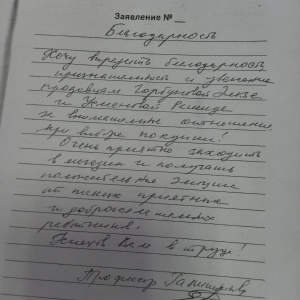 Заявление №
Благодарность
Хочу выразить благодарность
признательность и уважение
продавцам Горбуновой Элизе
и Усмановой Резеде
за внимательное отношение
при выборе покупки!
Очень приятно заходить
в магазин и получать
положительные эмоции
от таких приятных
и доброжелательных
работников.
Успехов Вам в труде!
Профессор